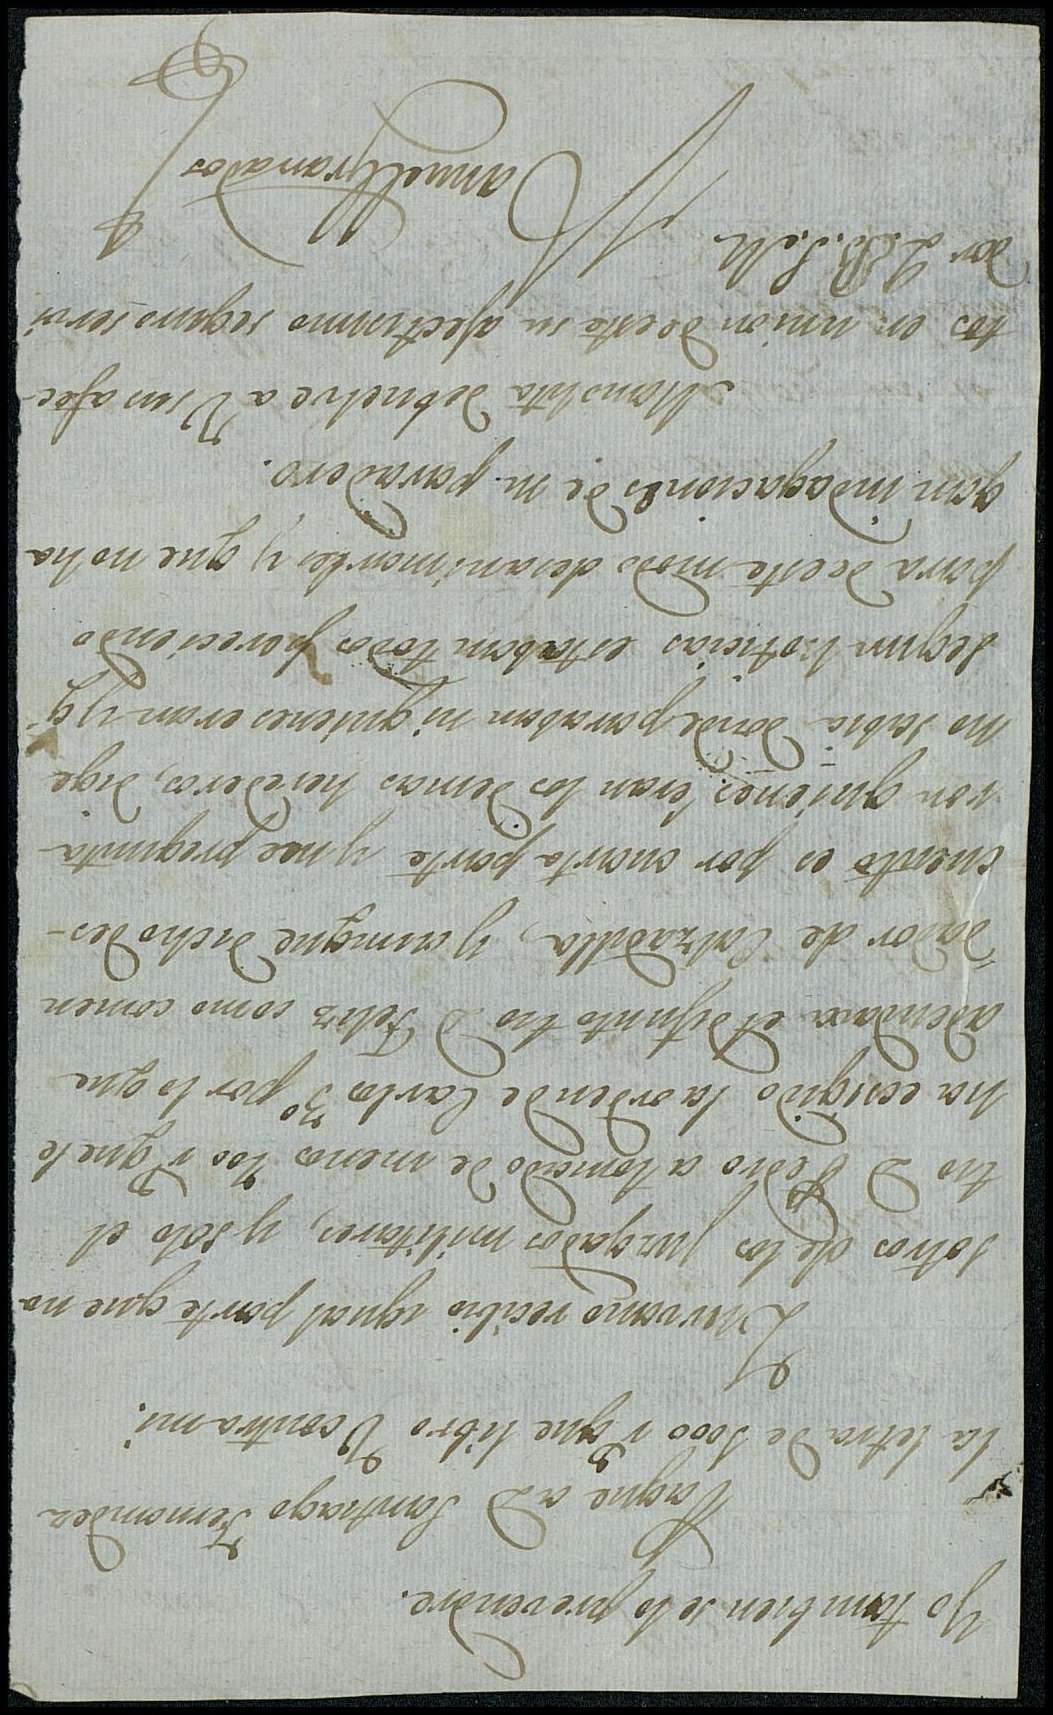 Yo tambien se lo prevendre.
Pague a D Santiago Fernandez
la letra de 1000 r que libro V contra mi.
Marrano recibio ygual parte que no
sotros de los juzgados militares, y solo el
tio D Pedro a tomado de menos 400 r que le
ha ecsigido la orden de Carlos 3º por lo que
adeudava el difunto tio D Felix como comen
dador de Calzadilla, y aunque dicho des-
cuento es por cuarta parte y me pregunta
ron quienes eran los demas herederos, dige
no sabia donde paraban ni quienes eran y q.
segun noticias estaban todos pereciendo
para de este modo desanimarles y que no ha
gan indagaciones de su paradero.
Manolita debuelve a V sus afec-
tos en union de este su afectisimo seguro servi
dor Q.B.S.M.
Manuel Granados